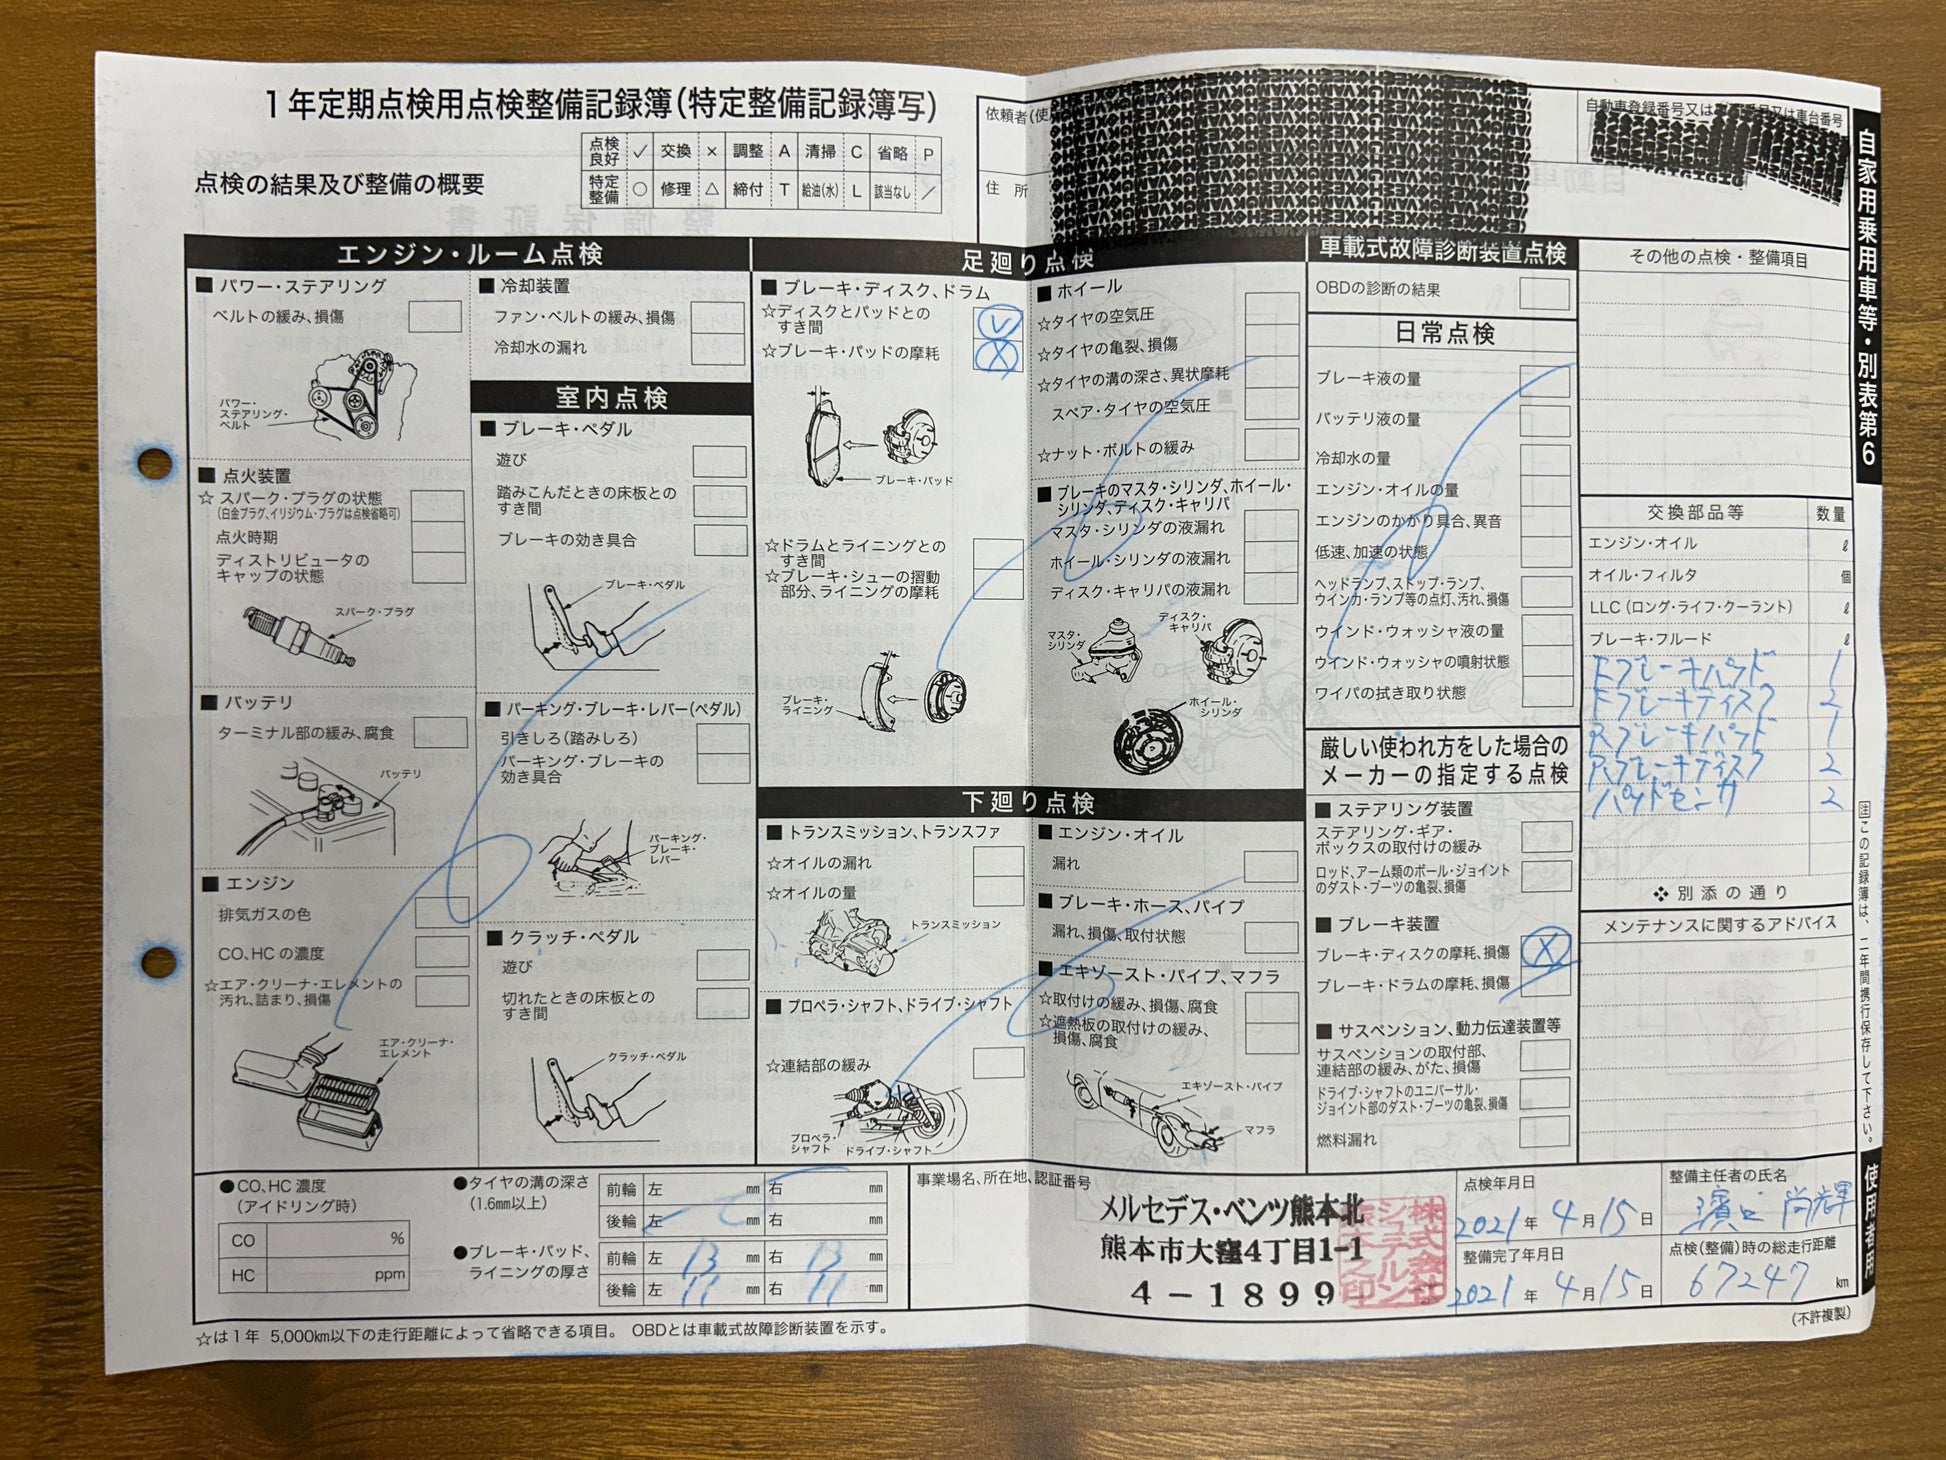 1年定期点検用点検整備記録簿(特定整備記録簿写)
点検の結果及び整備の概要
点検良好 ✓ 交換 × 調整 A 清掃 C 省略 P
特定整備 ○ 修理 △ 締付 T 給油(水) L 該当なし ／
依頼者(使
住 所
自動車登録番号又は
又は車台番号
自家用乗用車等・別表第6
エンジン・ルーム点検
■ パワー・ステアリング
ベルトの緩み、損傷
パワー・
ステアリング・
ベルト
■ 点火装置
☆ スパーク・プラグの状態
(白金プラグ、イリジウム・プラグは点検省略可)
点火時期
ディストリビュータの
キャップの状態
スパーク・プラグ
■ バッテリ
ターミナル部の緩み、腐食
バッテリ
■ エンジン
排気ガスの色
CO、HCの濃度
☆エア・クリーナ・エレメントの
汚れ、詰まり、損傷
エア・クリーナ・
エレメント
■ 冷却装置
ファン・ベルトの緩み、損傷
冷却水の漏れ
室内点検
■ ブレーキ・ペダル
遊び
踏みこんだときの床板との
すき間
ブレーキの効き具合
ブレーキ・ペダル
■ パーキング・ブレーキ・レバー(ペダル)
引きしろ(踏みしろ)
パーキング・ブレーキの
効き具合
パーキング・
ブレーキ・
レバー
■ クラッチ・ペダル
遊び
切れたときの床板との
すき間
クラッチ・ペダル
足廻り点検
■ ブレーキ・ディスク、ドラム
☆ディスクとパッドとの
すき間
✓
☆ブレーキ・パッドの摩耗
×
ブレーキ・パッド
☆ドラムとライニングとの
すき間
☆ブレーキ・シューの摺動
部分、ライニングの摩耗
ブレーキ・
ライニング
■ ホイール
☆タイヤの空気圧
☆タイヤの亀裂、損傷
☆タイヤの溝の深さ、異状摩耗
スペア・タイヤの空気圧
☆ナット・ボルトの緩み
■ ブレーキのマスタ・シリンダ、ホイール・
シリンダ、ディスク・キャリパ
マスタ・シリンダの液漏れ
ホイール・シリンダの液漏れ
ディスク・キャリパの液漏れ
マスタ・
シリンダ
ディスク・
キャリパ
ホイール・
シリンダ
下廻り点検
■ トランスミッション、トランスファ
☆オイルの漏れ
☆オイルの量
トランスミッション
■ プロペラ・シャフト、ドライブ・シャフト
☆連結部の緩み
プロペラ・
シャフト
ドライブ・シャフト
■ エンジン・オイル
漏れ
■ ブレーキ・ホース、パイプ
漏れ、損傷、取付状態
■ エキゾースト・パイプ、マフラ
☆取付けの緩み、損傷、腐食
☆遮熱板の取付けの緩み、
損傷、腐食
エキゾースト・パイプ
マフラ
車載式故障診断装置点検
OBDの診断の結果
日常点検
ブレーキ液の量
バッテリ液の量
冷却水の量
エンジン・オイルの量
エンジンのかかり具合、異音
低速、加速の状態
ヘッドランプ、ストップ・ランプ、
ウインカ・ランプ等の点灯、汚れ、損傷
ウインド・ウォッシャ液の量
ウインド・ウォッシャの噴射状態
ワイパの拭き取り状態
厳しい使われ方をした場合の
メーカーの指定する点検
■ ステアリング装置
ステアリング・ギア・
ボックスの取付けの緩み
ロッド、アーム類のボール・ジョイント
のダスト・ブーツの亀裂、損傷
■ ブレーキ装置
ブレーキ・ディスクの摩耗、損傷
×
ブレーキ・ドラムの摩耗、損傷
■ サスペンション、動力伝達装置等
サスペンションの取付部、
連結部の緩み、がた、損傷
ドライブ・シャフトのユニバーサル・
ジョイント部のダスト・ブーツの亀裂、損傷
燃料漏れ
その他の点検・整備項目
交換部品等 数量
エンジン・オイル ℓ
オイル・フィルタ 個
LLC(ロング・ライフ・クーラント) ℓ
ブレーキ・フルード ℓ
Fブレーキパッド 1
Fブレーキディスク 2
Rブレーキパッド 1
Rブレーキディスク 2
パッドセンサ 2
❖ 別添の通り
メンテナンスに関するアドバイス
注この記録簿は、二年間携行保存して下さい。
使用者用
●CO、HC濃度
(アイドリング時)
CO %
HC ppm
●タイヤの溝の深さ
(1.6mm以上)
前輪 左 mm 右 mm
後輪 左 mm 右 mm
●ブレーキ・パッド、
ライニングの厚さ
前輪 左 13 mm 右 13 mm
後輪 左 11 mm 右 11 mm
事業場名、所在地、認証番号
メルセデス・ベンツ熊本北
熊本市大窪4丁目1-1
4-1899
株式会社
シュテルン
点検年月日
2021年4月15日
整備完了年月日
2021年4月15日
整備主任者の氏名
濱口 尚輝
点検(整備)時の総走行距離
67247 km
☆は1年 5,000km以下の走行距離によって省略できる項目。 OBDとは車載式故障診断装置を示す。
(不許複製)